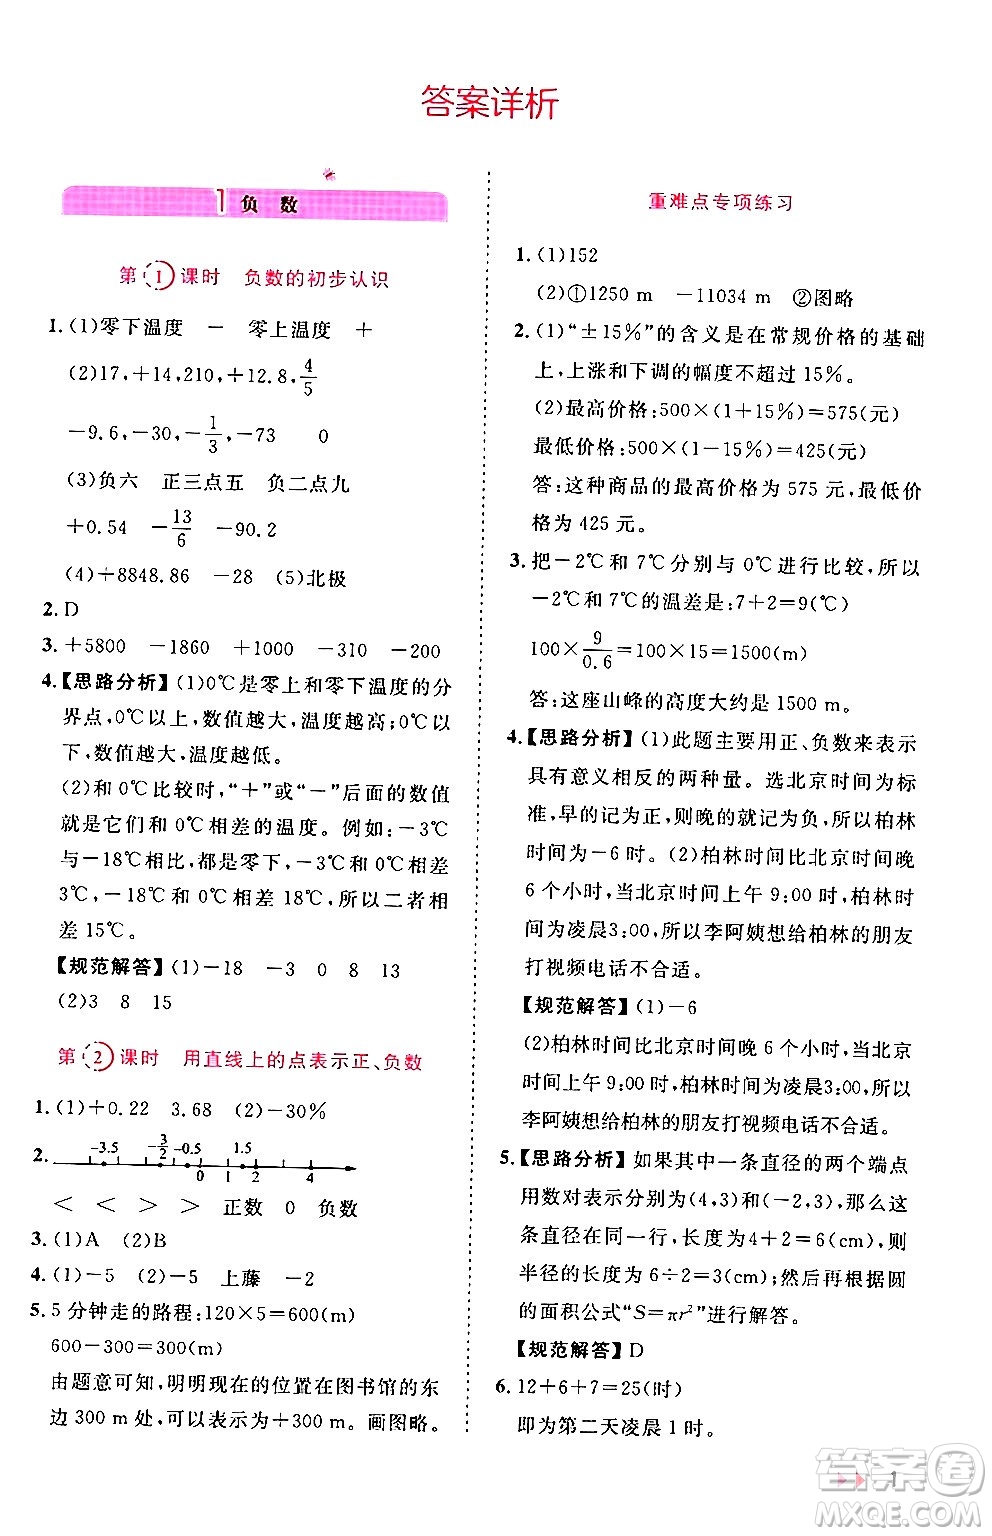 答案详析
1 负 数
第 1 课时 负数的初步认识
1.(1)零下温度 － 零上温度 ＋
(2)17,＋14,210,＋12.8,4/5
－9.6,－30,－1/3,－73 0
(3)负六 正三点五 负二点九
＋0.54 －13/6 －90.2
(4)＋8848.86 －28 (5)北极
2.D
3.＋5800 －1860 ＋1000 －200
4.【思路分析】(1)0℃是零上和零下温度的分
界点,0℃以上,数值越大,温度越高;0℃以
下,数值越大,温度越低。
(2)和 0℃比较时,“＋”或“－”后面的数值
就是它们和 0℃相差的温度。例如:－3℃
与－18℃相比,都是零下,－3℃和 0℃相差
3℃,－18℃和 0℃相差 18℃,所以二者相
差 15℃。
【规范解答】(1)－18 －3 0 8 13
(2)3 8 15
第 2 课时 用直线上的点表示正、负数
1.(1)＋0.22 3.68 (2)－30%
2. －3.5 －3/2 －0.5 1.5
0 1 2 4
＜ ＜ ＞ ＞ 正数 0 负数
3.(1)A (2)B
4.(1)－5 (2)－5 上藤 －2
5.5 分钟走的路程:120×5＝600(m)
600－300＝300(m)
由题意可知,明明现在的位置在图书馆的东
边 300 m 处,可以表示为＋300 m。画图略。
重难点专项练习
1.(1)152
(2)①1250 m －11034 m ②图略
2.(1)“±15%”的含义是在常规价格的基础
上,上涨和下调的幅度不超过 15%。
(2)最高价格:500×(1＋15%)＝575(元)
最低价格:500×(1－15%)＝425(元)
答:这种商品的最高价格为 575 元,最低价
格为 425 元。
3.把－2℃和 7℃分别与 0℃进行比较,所以
－2℃和 7℃的温差是:7＋2＝9(℃)
100×9/0.6＝100×15＝1500(m)
答:这座山峰的高度大约是 1500 m。
4.【思路分析】(1)此题主要用正、负数来表示
具有意义相反的两种量。选北京时间为标
准,早的记为正,则晚的就记为负,所以柏林
时间为－6 时。(2)柏林时间比北京时间晚
6 个小时,当北京时间上午 9:00 时,柏林时
间为凌晨3:00,所以李阿姨想给柏林的朋友
打视频电话不合适。
【规范解答】(1)－6
(2)柏林时间比北京时间晚 6 个小时,当北
京时间上午 9:00 时,柏林为凌晨3:00,所以
李阿姨想给柏林的朋友打视频电话不合适。
5.【思路分析】如果其中一条直径的两个端点
用数对表示分别为(4,3)和(－2,3),那么这
条直径在同一行,长度为 4＋2＝6(cm),则
半径的长度为 6÷2＝3(cm);然后再根据圆
的面积公式“S＝πr²”进行解答。
【规范解答】D
6.12＋6＋7＝25(时)
即为第二天凌晨 1 时。
1
答案圈
MXQE.COM